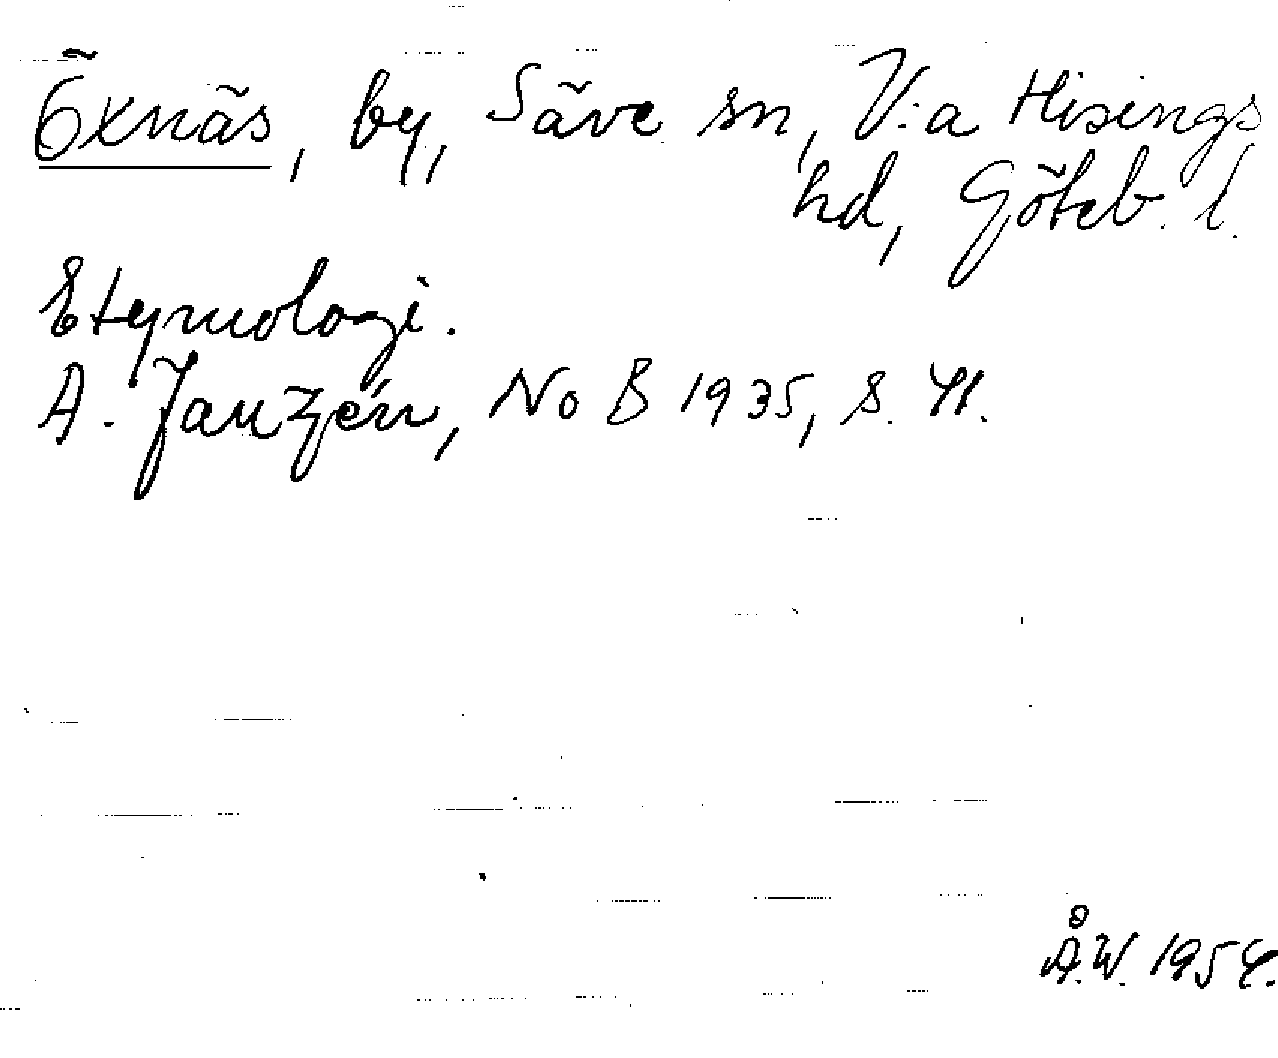 Öxnäs, by, Säve sn, V:a Hisings
hd, Göteb. l.
Etymologi.
A. Janzén, NoB 1935, s. 41.
Å.W. 1954.